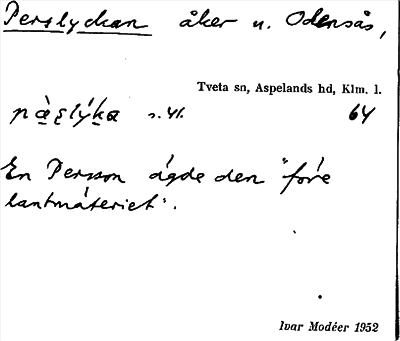 Perslyckan åker u. Odensås,
Tveta sn, Aspelands hd, Klm. l.
s. 41. 64
En Persson ägde den "före
lantmäteriet".
Ivar Modéer 1952